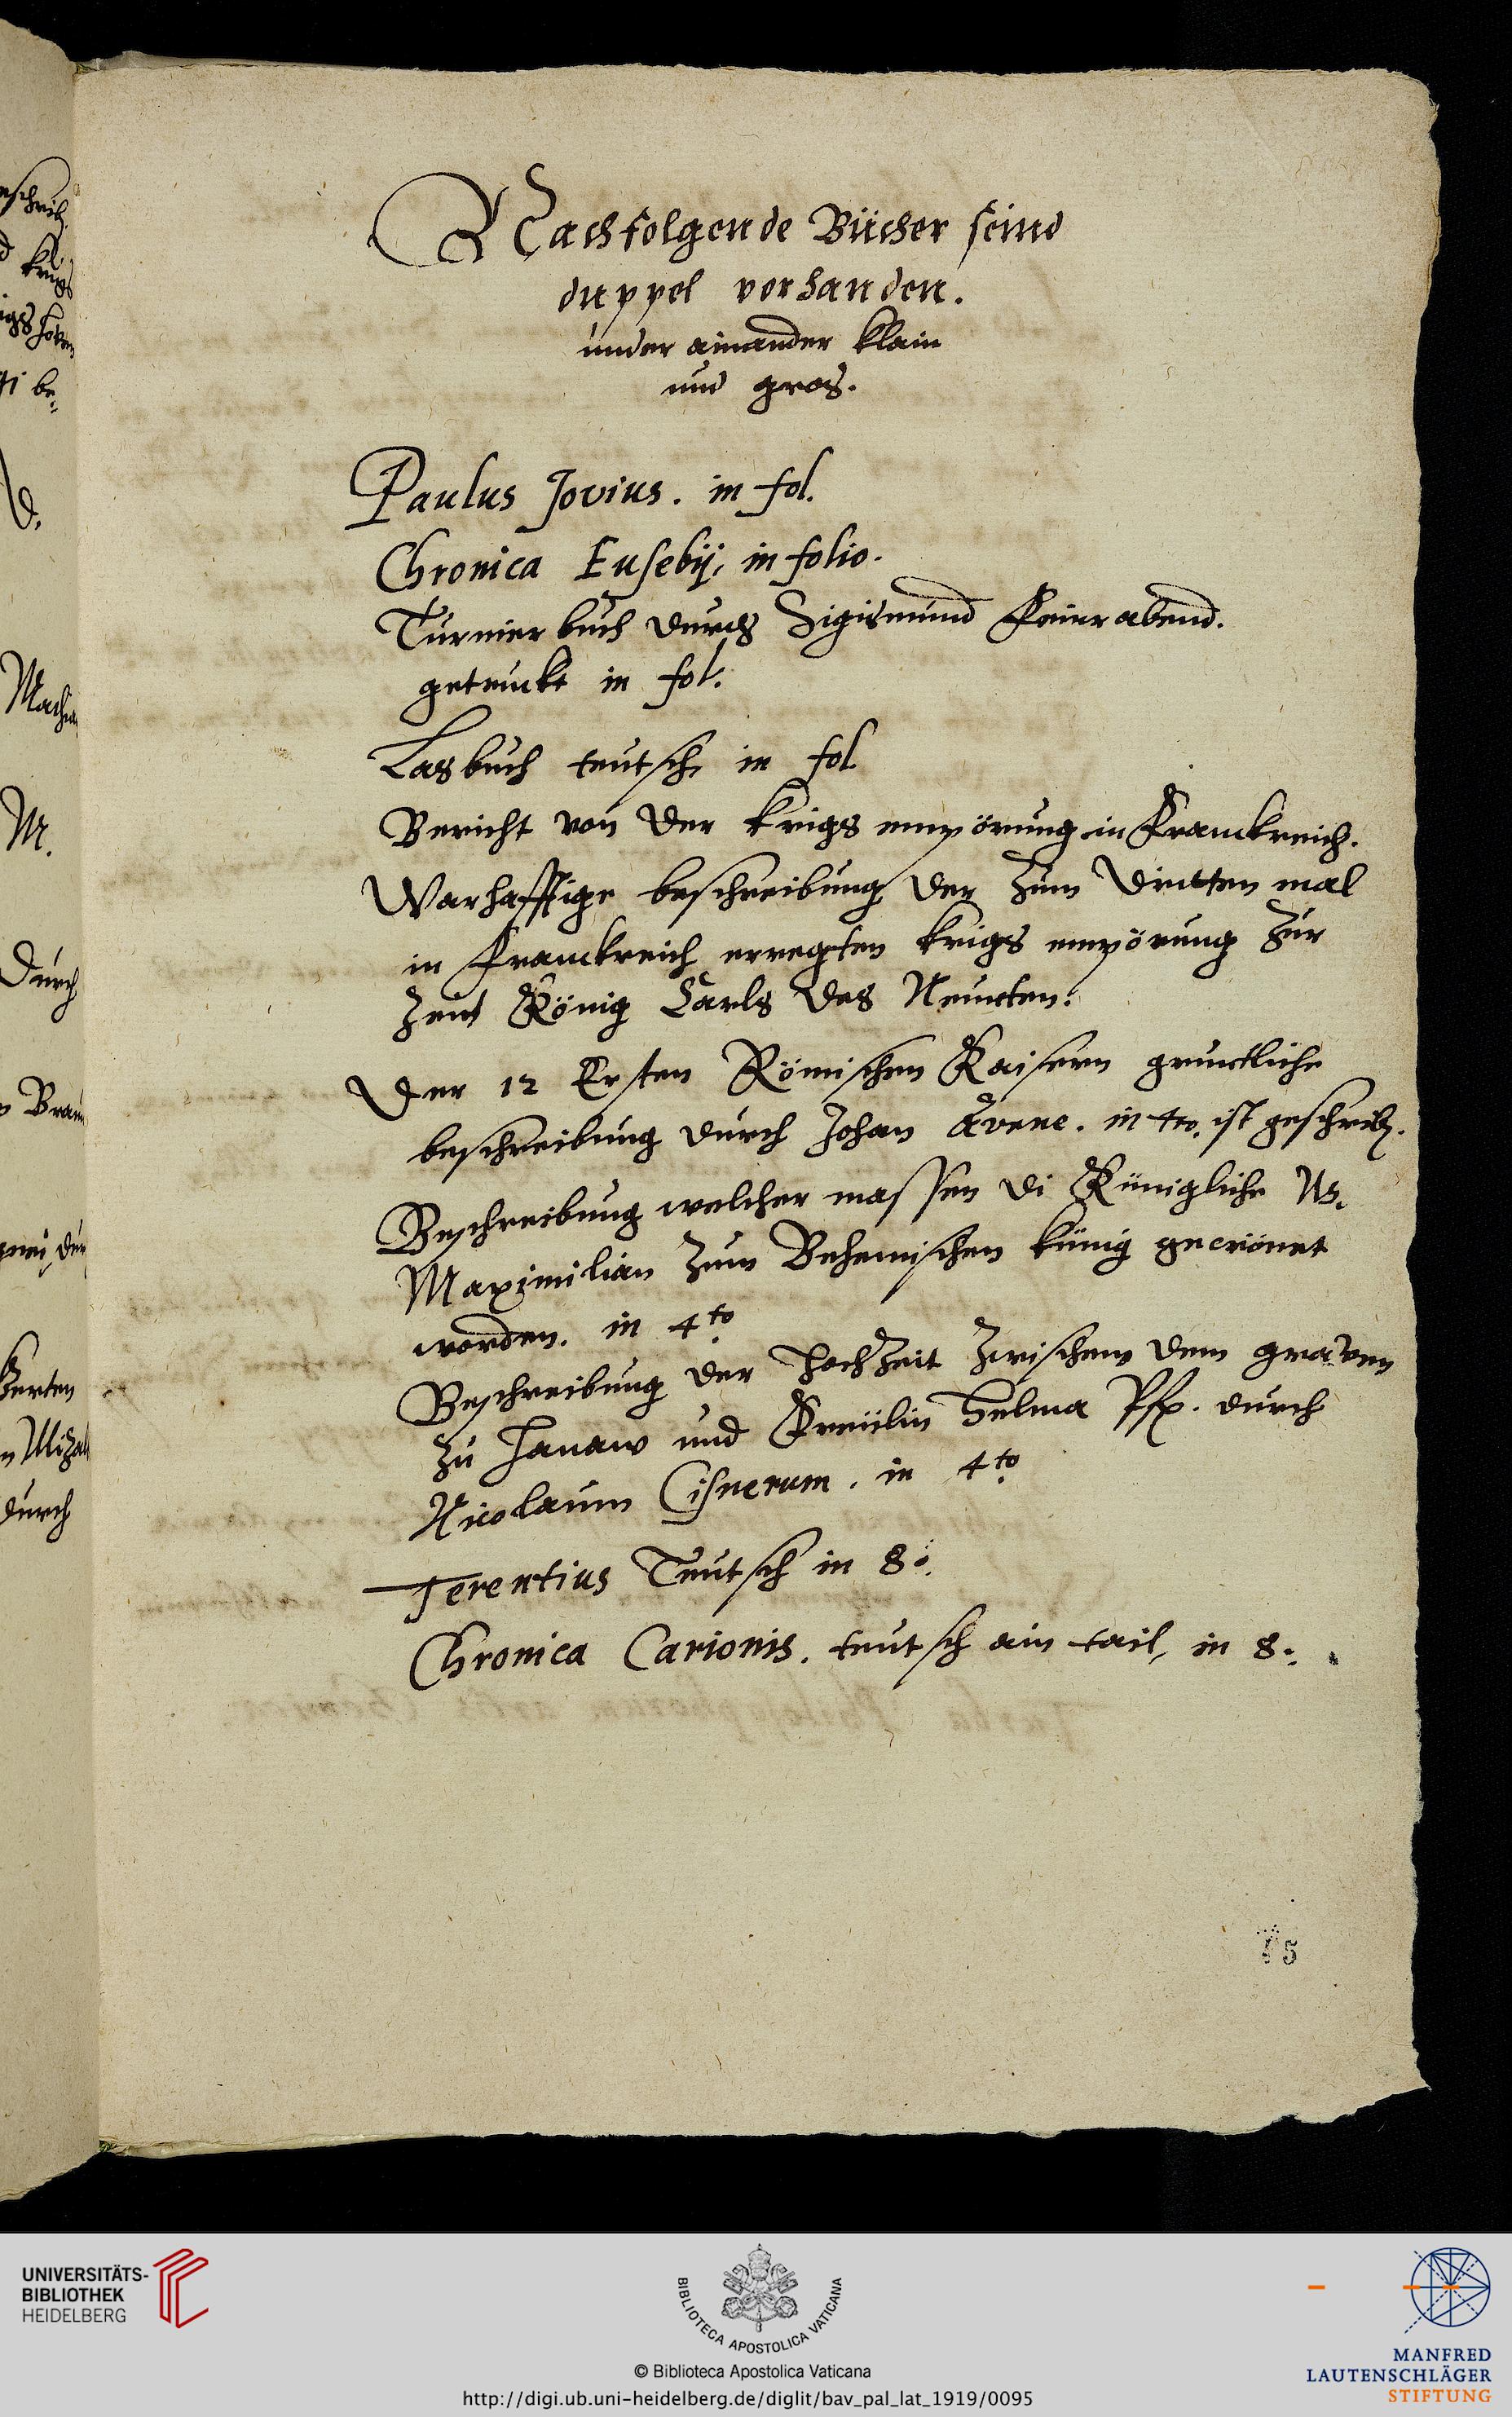 Nachfolgende Bücher seind
duppel vorhanden.
under ainander klain
und gros.
Paulus Jovius. in fol.
Chronica Eusebij, in folio.
Turnier buch durch Sigismund Feierabend.
getruckt in fol.
Lasbuch teutsch in fol
Bericht von der krigs empörung in Franckreich.
Warhafftige beschreibung der zum dritten mal
in Franckreich erregten krigs empörung zur
zeit König Carls des Neunten.
Der 12 Ersten Römischen Kaisern gruntliche
beschreibung durch Johan in 4to. ist geschrib.
Beschreibung welcher massen di Künigliche
Maximilian zum Behemischen künig gecrönet
worden. in 4to
Beschreibung der Hochzeit zwischem dem graven
zu Hanaw und Freülin Helena Pf. durch
Nicolaum Cisnerum. in 4to
Terentius Teutsch in 8o.
Chronica Carionis. teutsch ain tail, in 8.
75
Mach
M.
Durch
durch
UNIVERSITÄTS-
BIBLIOTHEK
HEIDELBERG
BIBLIOTECA APOSTOLICA VATICANA
© Biblioteca Apostolica Vaticana
http://digi.ub.uni-heidelberg.de/diglit/bav_pal_lat_1919/0095
MANFRED
LAUTENSCHLÄGER
STIFTUNG